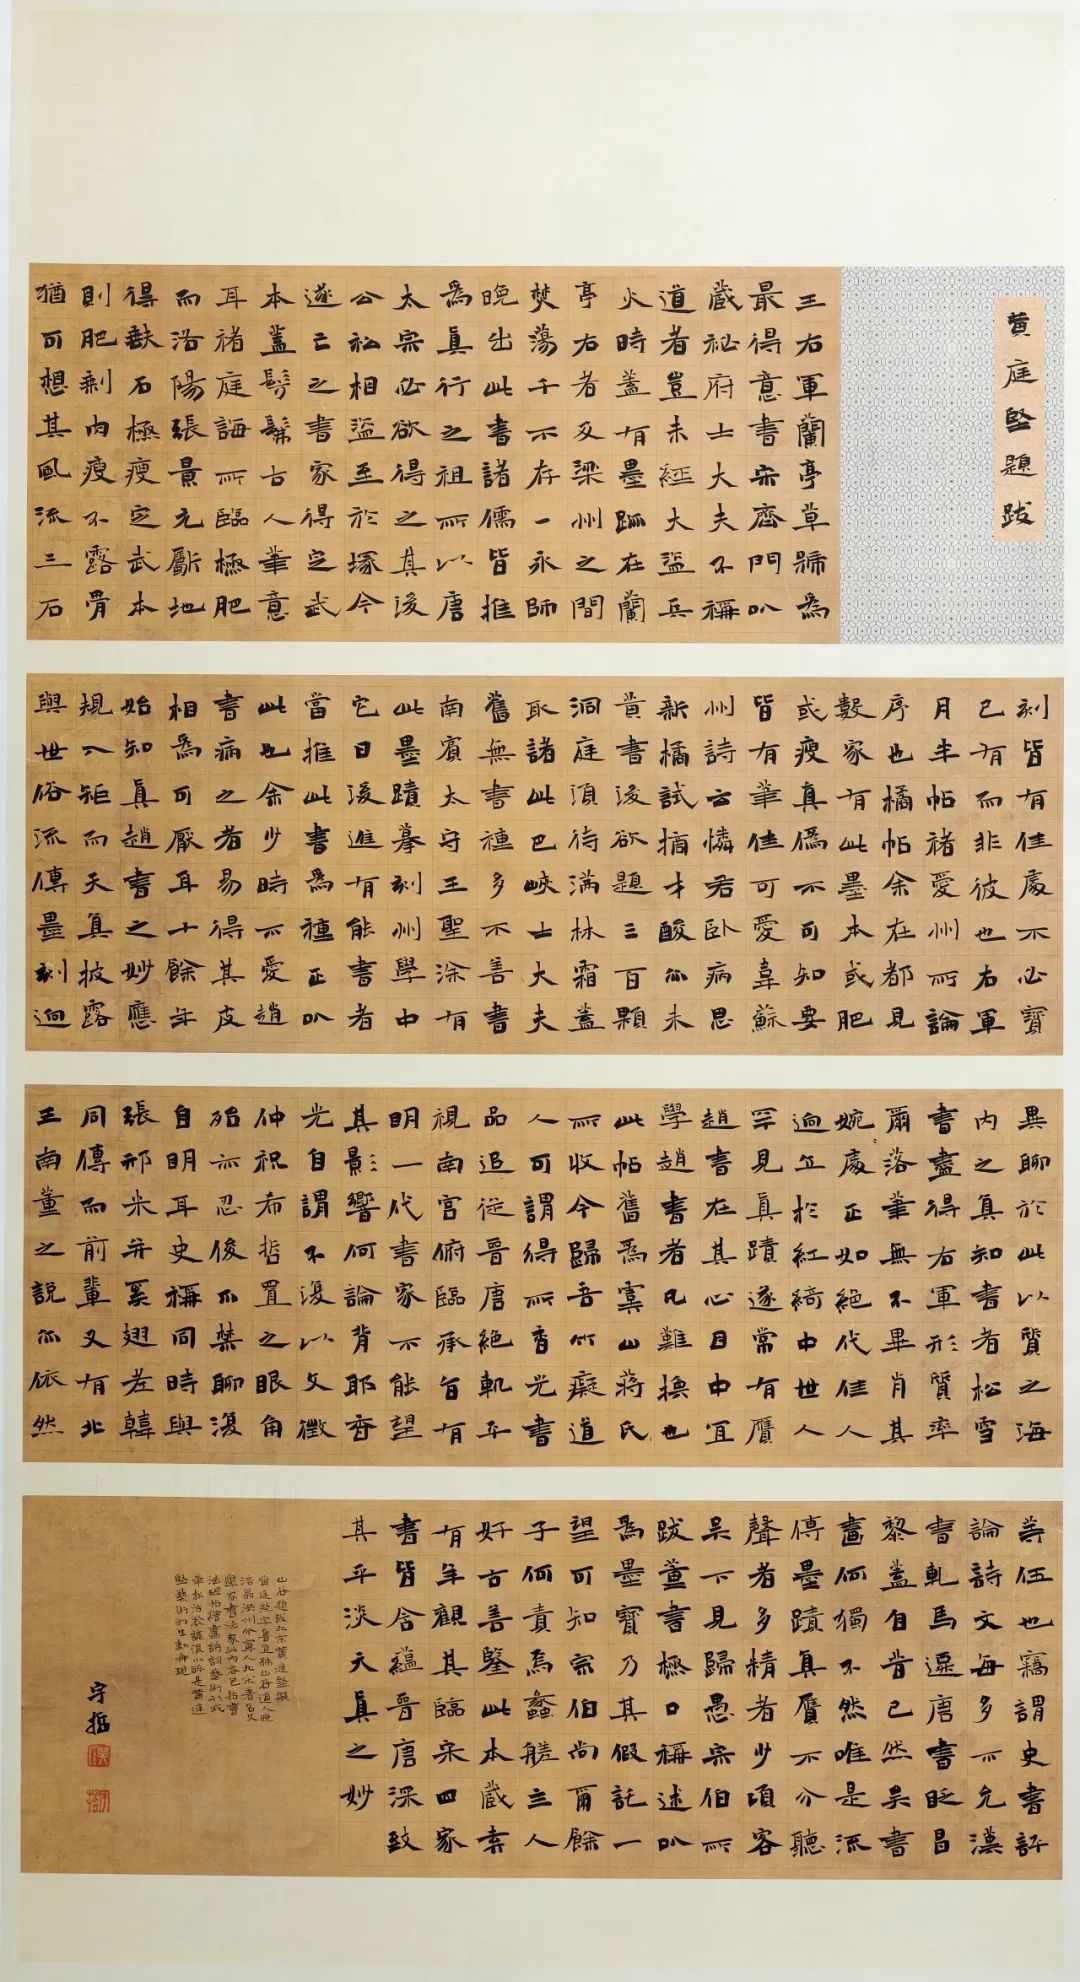 黄庭堅題跋
王右軍蘭亭草號為
最得意書宋齊間以
藏祕府士大夫不稱
道者豈未經大盜兵
火時蓋有墨跡在蘭
亭右者及梁州之間
焚蕩千不存一永師
晚出此書諸儒皆推
為真行之祖所以唐
太宗必欲得之其後
公私相盜至於塚今
遂亡之書家得定武
本蓋髣髴古人筆意
耳褚庭誨所臨極肥
而洛陽張景元斸地
得缺石極瘦定武本
則肥剩肉瘦不露骨
猶可想其風流三石
刻皆有佳處不必寶
已有而非彼也右軍
月半帖褚愛州所論
序也橘帖余在都見
數家有此墨本或肥
或瘦真偽不可知要
皆有筆佳可愛韋蘇
州詩云憐君臥病思
新橘試摘才酸亦未
黄書後欲題三百顆
洞庭須待滿林霜蓋
取諸此巴峽士大夫
舊無書種多不善書
南賓太守王聖涂有
此墨蹟摹刻州學中
它日後進有能書者
當推此書為種正以
此也余少時亦愛趙
書病之者易得其皮
相為可厭耳十餘年
始知真趙書之妙應
規入矩而天真披露
與世俗流傳墨刻迥
異聊於此以質之海
内之真知書者松雪
書盡得右軍形質率
爾落筆無不畢肖其
婉處正如絕代佳人
迥立於紅綺中世人
罕見真蹟遂常有贗
趙書在其心目中宜
學趙書者凡難換也
此帖舊為虞山蔣氏
所收今歸吾竹癡道
人可謂得所香光書
品追從晉唐絕軌平
視南宮俯臨承旨有
明一代書家不能望
其影響何論背耶香
光自謂不復以文徵
仲祝希哲置之眼角
殆亦忍俊不禁聊復
自明耳史稱同時與
張邢米并奚翅老韓
同傳而前輩又有北
王南董之說亦依然
等伍也竊謂史書評
論詩文每多亦允漢
書軋馬還唐書眨昌
黎蓋自昔已然吳書
畵何獨不然唯是流
傳墨蹟真贗不分聽
聲者多精者少項容
吳下見歸愚宗伯所
跋董書極口稱述以
為墨寶乃其假託一
望可知宗伯尚爾餘
子何責焉蠡艖主人
好古善鑒此本藏弆
有年觀其臨宋四家
書皆含蘊晉唐深致
其平淡天真之妙
山谷題跋北宋黄庭堅撰
黄庭堅字魯直號山谷道人晚
守哲